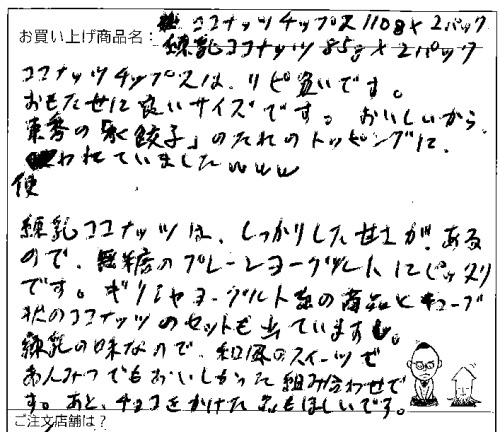 ココナッツチップス110g×2パック
お買い上げ商品名: 練乳ココナッツ85g×2パック
ココナッツチップスは、リピ買いです。
おもたせに良いサイズです。おいしいから、
の「水餃子」のたれのトッピングに、
使われていましたwww
練乳ココナッツは、しっかりした甘さが、ある
ので、無糖のプレーンヨーグルトにピッタリ
です。ギリシャヨーグルト系の商品とキューブ
状のココナッツのセットも
練乳の味なので、和風のスイーツで
あんみつでもおいしかった組み合わせで
す。あと、チョコをかけた品もほしいです。
ご注文店舗は?